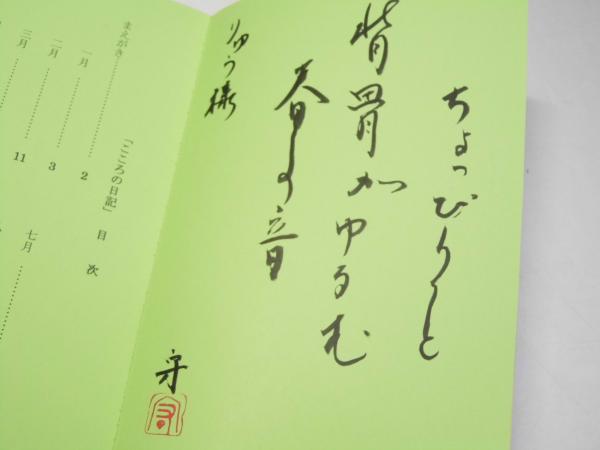 ちょっぴりと
背骨がゆるむ
春の音
りゅう様
守
「こころの日記」 目次
まえがき
一月 2
二月 3
三月 11
七月